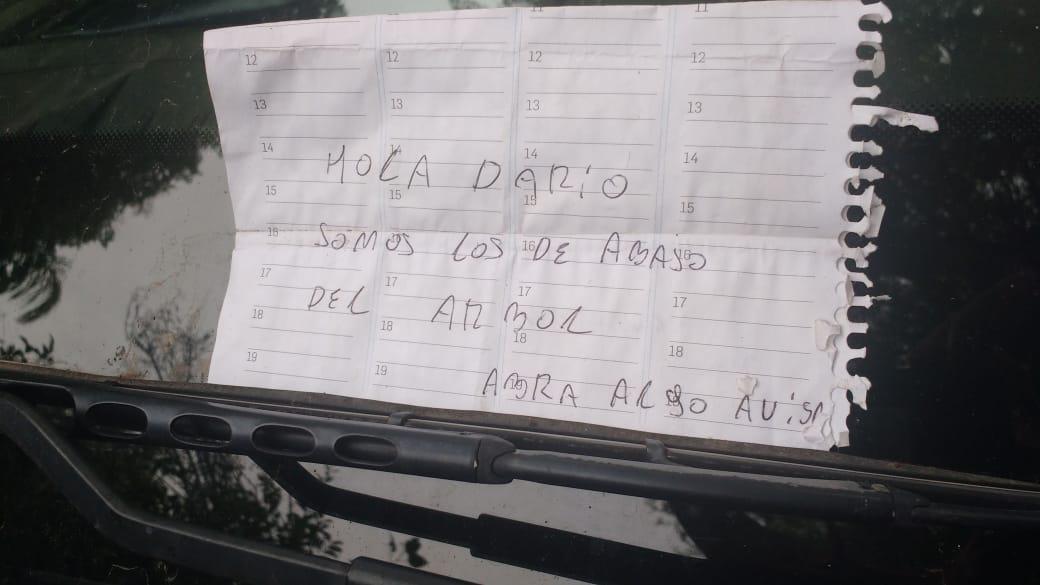 11 11
12 12 12 12
13 13 13 13
14 14 14 14
HOLA DARiO
15 15 15 15
16 SOMOS LOS 16 DE ABAJO 16
17 17 17 17
DEL ARBOL
18 18 18 18
19 19 19
ABRA ALGO AViSA